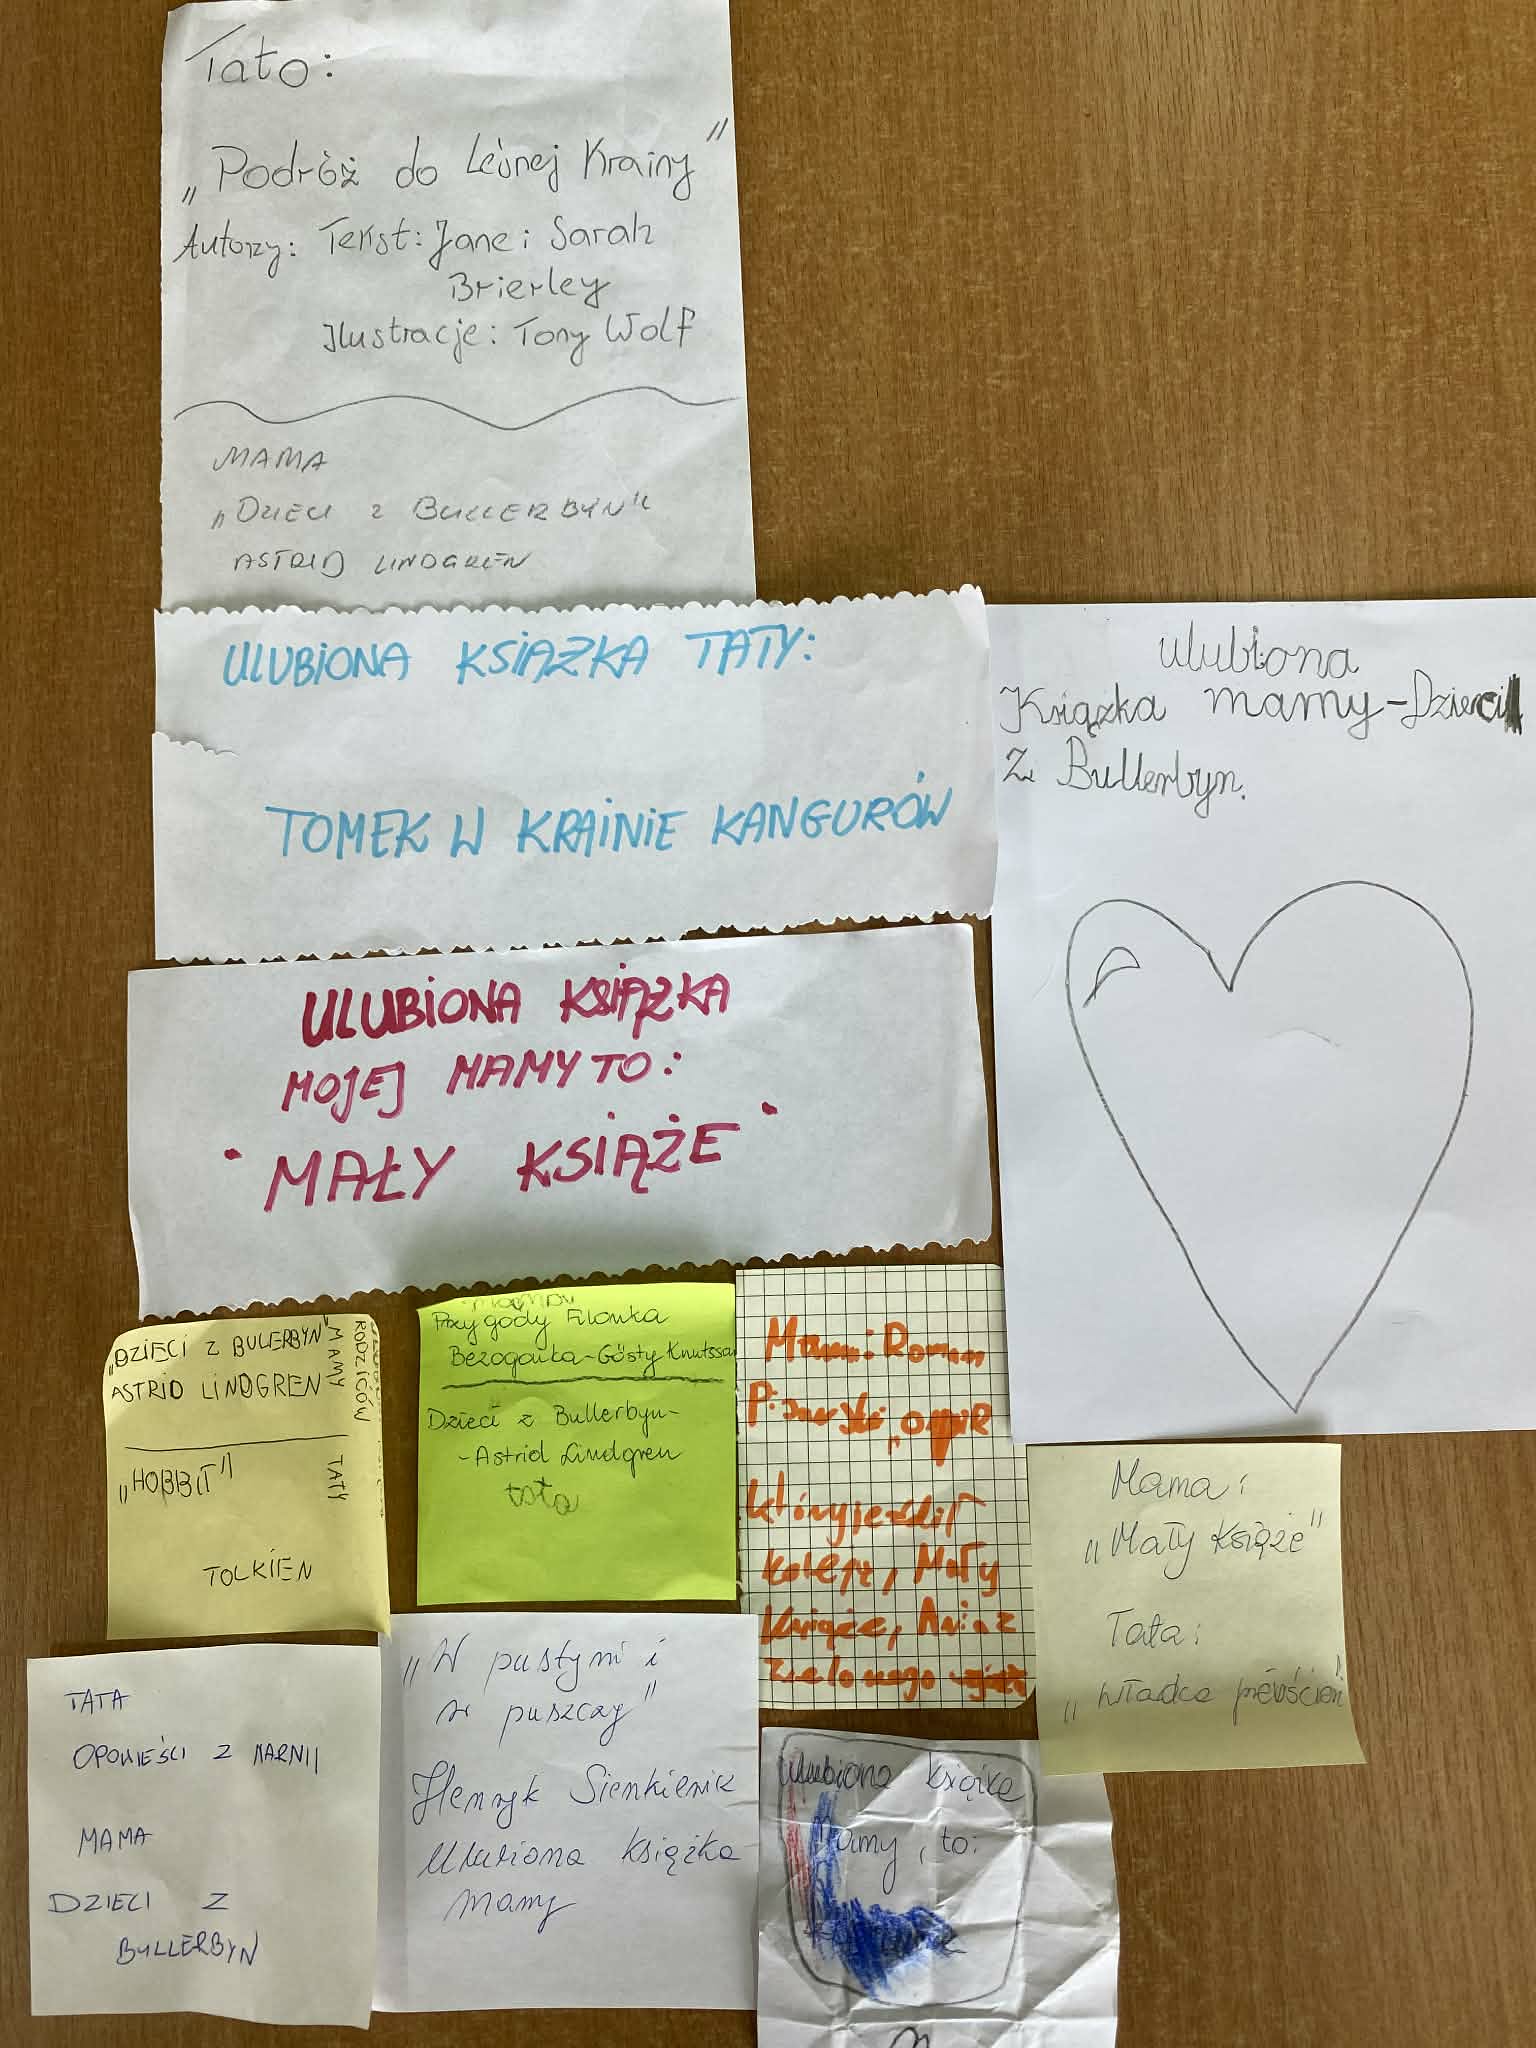 Tato:
„Podróż do Leśnej Krainy"
Autorzy: Tekst: Jane i Sarah
Brierley
Ilustracje: Tony Wolf
MAMA
„DZIECI Z BULLERBYN"
ASTRID LINDGREN
ULUBIONA KSIĄZKA TATY:
TOMEK W KRAINIE KANGURÓW
ulubiona
Książka mamy-Dzieci
Z Bullerbyn.
ULUBIONA KSIĄZKA
MOJEJ MAMY TO:
"MAŁY KSIĄŻE"
„DZIECI Z BULERBYN"
ASTRID LINDGREN
MAMY
RODZICÓW
„HOBBIT"
TATY
TOLKIEN
Przygody Filonka
Bezogonka-Gösty Knutsson
Dzieci z Bullerbyn-
-Astrid Lindgren
tata
Mama: Roman
Pisarski,
który jeździł
koleją, Mały
Książe, Ania z
zielonego
Mama:
„Mały Książe"
Tata:
„Władca pierścieni"
TATA
OPOWIEŚCI Z NARNII
MAMA
DZIECI Z
BULLERBYN
„W pustyni i
w puszczy"
Henryk Sienkiewicz
Ulubiona książka
mamy
Ulubiona książka
Mamy, to: